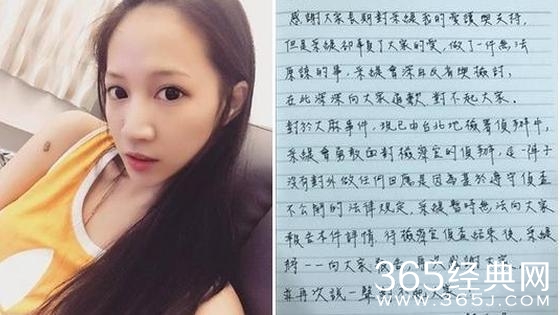 感謝大家長期對采緹我的愛護與支持,
但是采緹卻辜負了大家的愛,做了一件無法
原諒的事,采緹會深自反省與檢討,
在此深深向大家道歉,對不起大家。
對於大麻事件,現已由台北地檢署偵辦中,
采緹會勇敢面對檢察官的偵辦,這一陣子
沒有對外做任何回應是因為基於遵守偵查
不公開的法律規定,采緹暫時無法向大家
報告本件詳情,待檢察官偵查結束後,采緹
將一一向大家報告,再次感謝大家
並再次說一聲對不起
365经典网
WWW.365J.COM